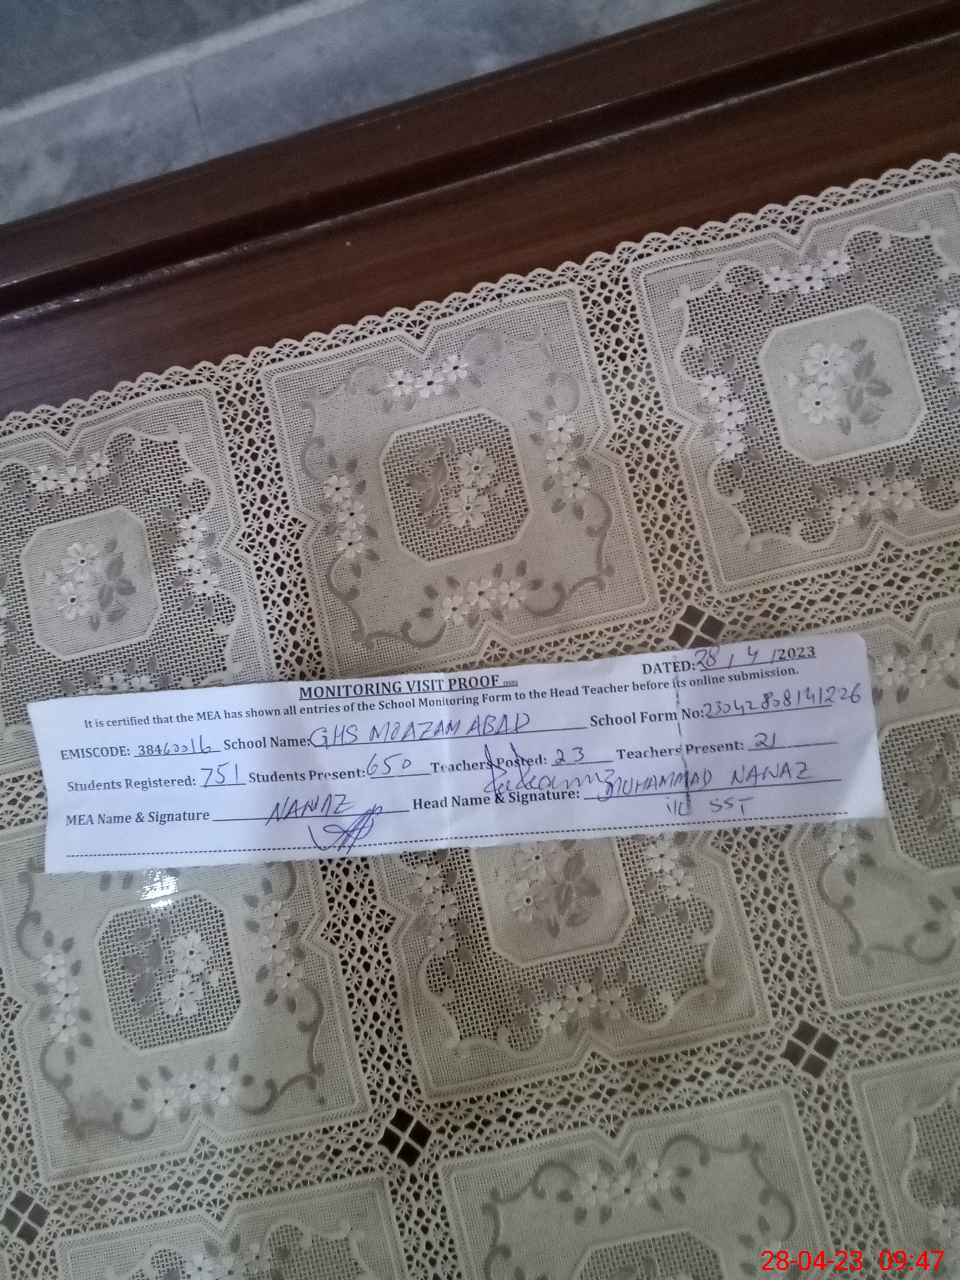 DATED: 28/4/2023
MONITORING VISIT PROOF
It is certified that the MEA has shown all entries of the School Monitoring Form to the Head Teacher before its online submission.
EMISCODE: 38460016 School Name: GHS MOAZAM ABAD School Form No: 23042808141226
Students Registered: 751 Students Present: 650 Teachers Posted: 23 Teachers Present: 21
MEA Name & Signature NANAZ Head Name & Signature: MUHAMMAD NANAZ
SST
28-04-23 09:47